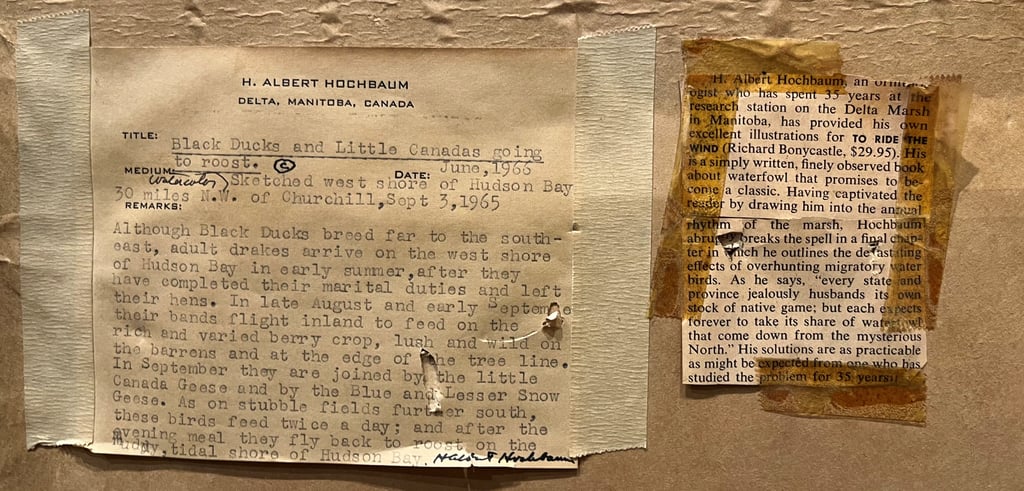 H. ALBERT HOCHBAUM
DELTA, MANITOBA, CANADA
TITLE: Black Ducks and Little Canadas going
to roost. © DATE: June, 1966
MEDIUM: Watercolor Sketched west shore of Hudson Bay
30 miles N.W. of Churchill, Sept 3,1965
REMARKS:
Although Black Ducks breed far to the south-
east, adult drakes arrive on the west shore
of Hudson Bay in early summer,after they
have completed their marital duties and left
their hens. In late August and early Septembe
their bands flight inland to feed on the
rich and varied berry crop, lush and wild on
the barrens and at the edge of the tree line.
In September they are joined by the little
Canada Geese and by the Blue and Lesser Snow
Geese. As on stubble fields further south,
these birds feed twice a day; and after the
evening meal they fly back to roost on the
muddy,tidal shore of Hudson Bay. H Albert Hochbaum
H. Albert Hochbaum, an ornithol-
ogist who has spent 35 years at the
research station on the Delta Marsh
in Manitoba, has provided his own
excellent illustrations for TO RIDE THE
WIND (Richard Bonycastle, $29.95). His
is a simply written, finely observed book
about waterfowl that promises to be-
come a classic. Having captivated the
reader by drawing him into the annual
rhythm of the marsh, Hochbaum
abruptly breaks the spell in a final chap-
ter in which he outlines the devastating
effects of overhunting migratory water
birds. As he says, “every state and
province jealously husbands its own
stock of native game; but each expects
forever to take its share of waterfowl
that come down from the mysterious
North.” His solutions are as practicable
as might be expected from one who has
studied the problem for 35 years.